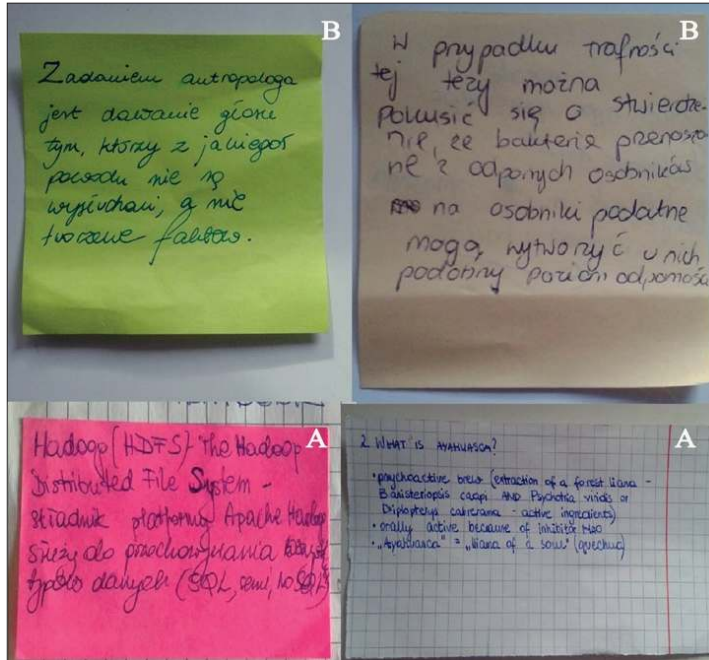 B
Zadaniem antropologa
jest dawanie głosu
tym, którzy z jakiegoś
powodu nie są
wysłuchani, a nie
tworzenie faktów.
B
W przypadku trafności
tej tezy można
pokusić się o stwierdze-
nie, że bakterie przenoszo
ne z odpornych osobników
na osobniki podatne
mogą wytworzyć u nich
podobny poziom odporności
A
Hadoop (HDFS) - The Hadoop
Distributed File System -
składnik platformy Apache Hadoop
służy do przechowywania
typów danych (SQL, semi, no SQL)
A
2. WHAT IS AYAHUASCA?
• psychoactive brew (extraction of a forest liana -
Banisteriopsis caapi AND Psychotria viridis or
Diplopterys cabrerana - active ingredients)
• orally active because of inhibitor MAO
• "Ayahuasca" = "liana of a soul" (quechua)